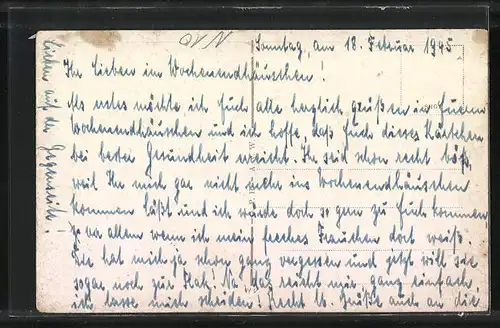 Sonntag, am 18. Februar 1945
Ihr lieben im Wochenendhäuschen!
Als erstes möchte ich Euch alle herzlich grüßen in Euerm
Wochenendhäuschen und ich hoffe, daß Euch dieses Kärtchen
bei bester Gesundheit erreicht. Ihr seid schon recht böse,
weil Ihr mich gar nicht mehr ins Wochenendhäuschen
kommen läßt und ich würde doch so gern zu Euch kommen
so vor allem wenn ich mein freches Frauchen dort weiß.
Sie hat mich ja schon ganz vergessen und jetzt will sie
sogar noch zur Flak! Na das reicht mir, ganz einfach
ich lasse mich scheiden! Recht l. Grüße auch an die
Lieben auf der Gegenseite!